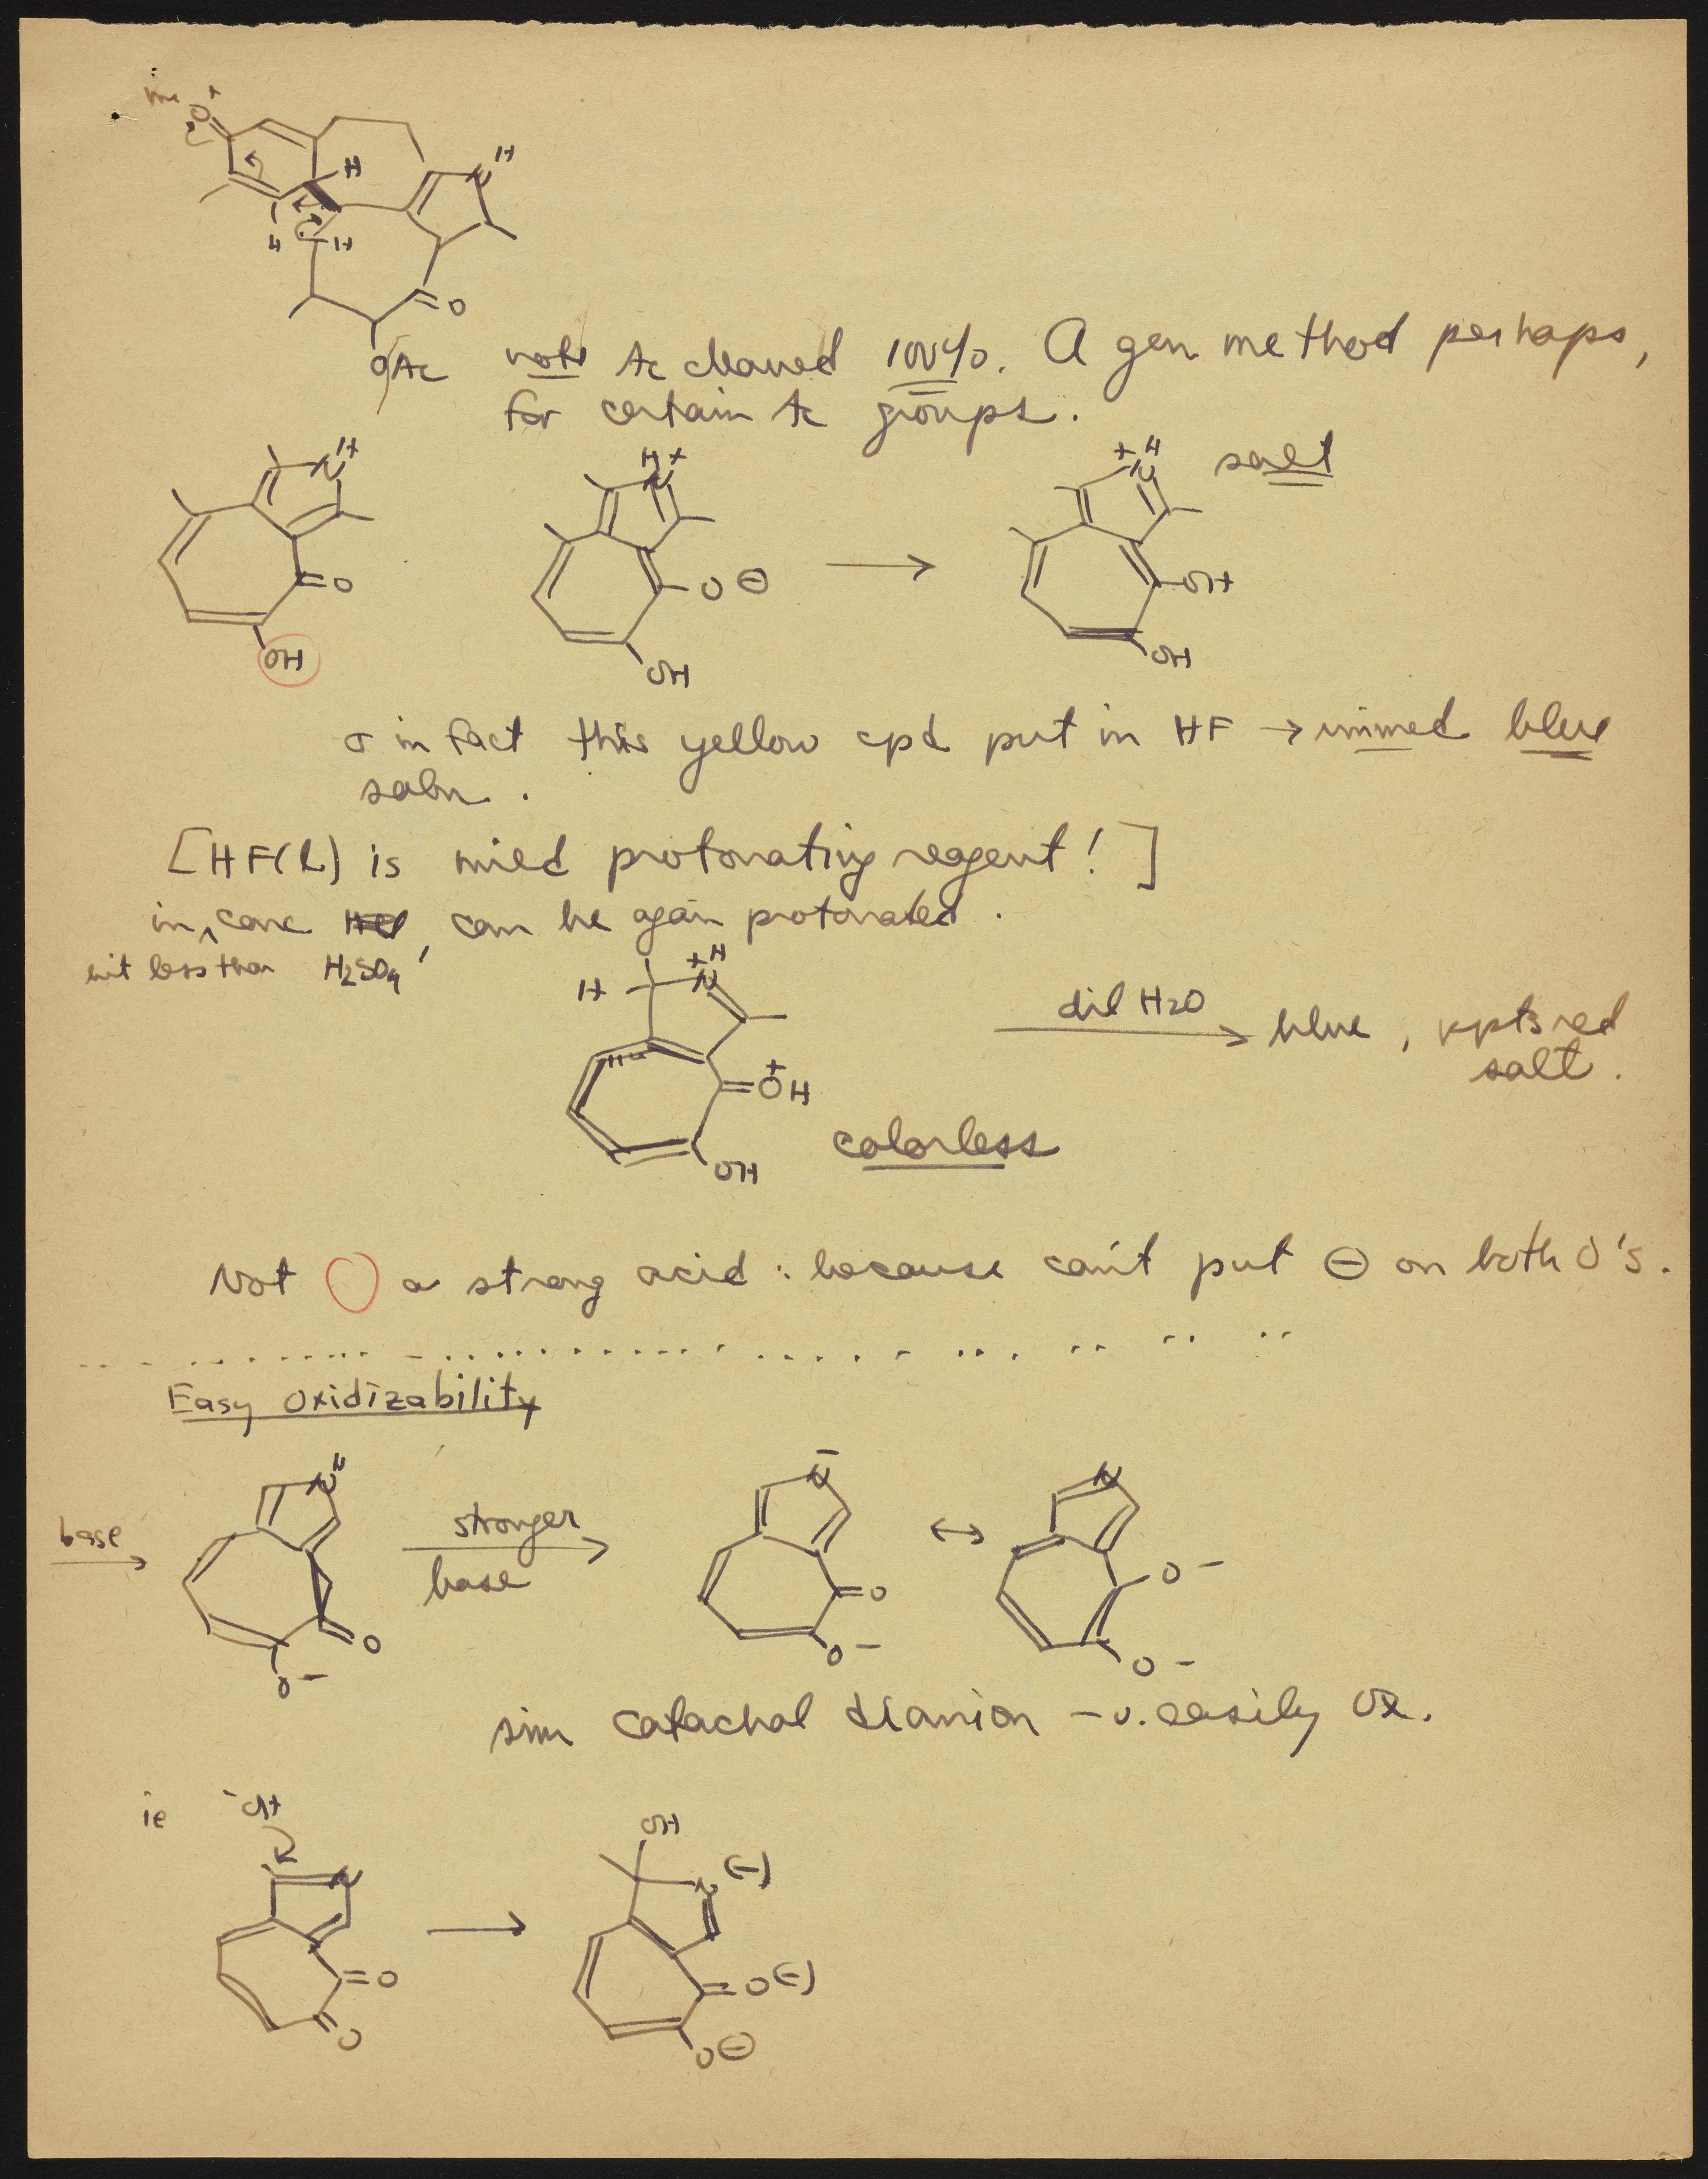 me O+
H
N H
H H
O
OAc note Ac cleaved 100%. A gen method perhaps,
for certain Ac groups.
N H
O
OH
H +
N
O ⊖
OH
→
+ H
N
OH
OH
salt
σ in fact this yellow cpd put in HF → immed blue
soln.
[HF(L) is mild protonating reagent!]
in conc H2SO4, can be again protonated.
but less than
H
+ H
N
+
=OH
OH
colorless
dil H2O → blue, ppts red
salt.
Not a strong acid: because can't put ⊖ on both O's.
Easy Oxidizability
base →
N H
O
O−
stronger
base
N −
O
O−
↔
N
O−
O−
sim catachol dianion – v. easily Ox.
ie
−OH
N
O
O
→
OH
N (−)
O(−)
O⊖